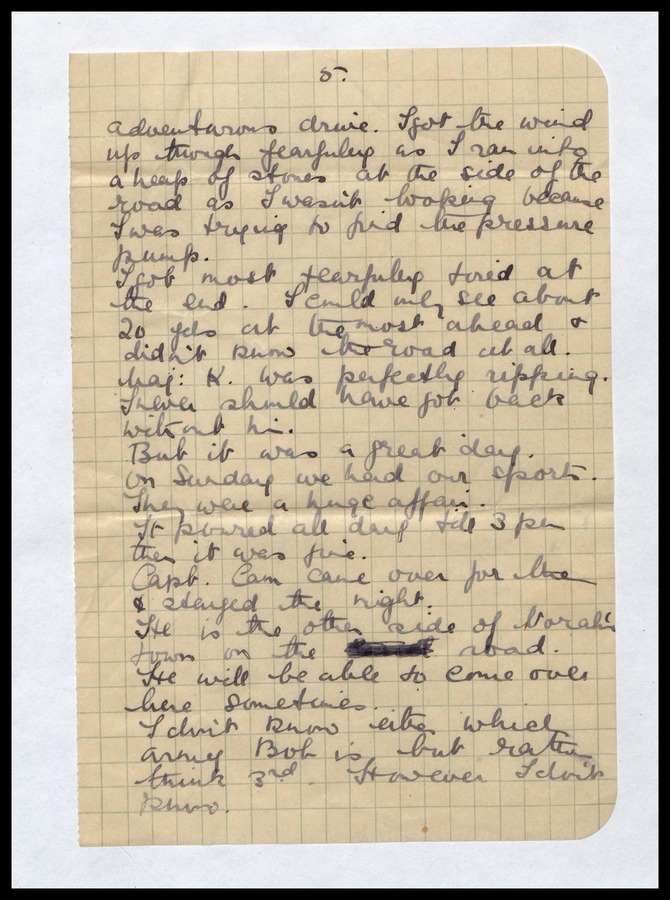 5.
adventurous drive. I got the wind
up though fearfully as I ran into
a heap of stones at the side of the
road as I wasn't looking because
I was trying to find the pressure
pump.
I got most fearfully tired at
the end. I could only see about
20 yds at the most ahead &
didn't know the road at all.
Maj: K. was perfectly ripping.
I never should have got back
without him.
But it was a great day.
On Sunday we had our sports.
They were a huge affair.
It poured all day till 3 pm
then it was fine.
Capt. Cam came over for them
& stayed the night.
He is the other side of Norah's
town on the road.
He will be able to come over
here sometimes.
I don't know either which
army Bob is but rather
think 3rd. However I don't
know.